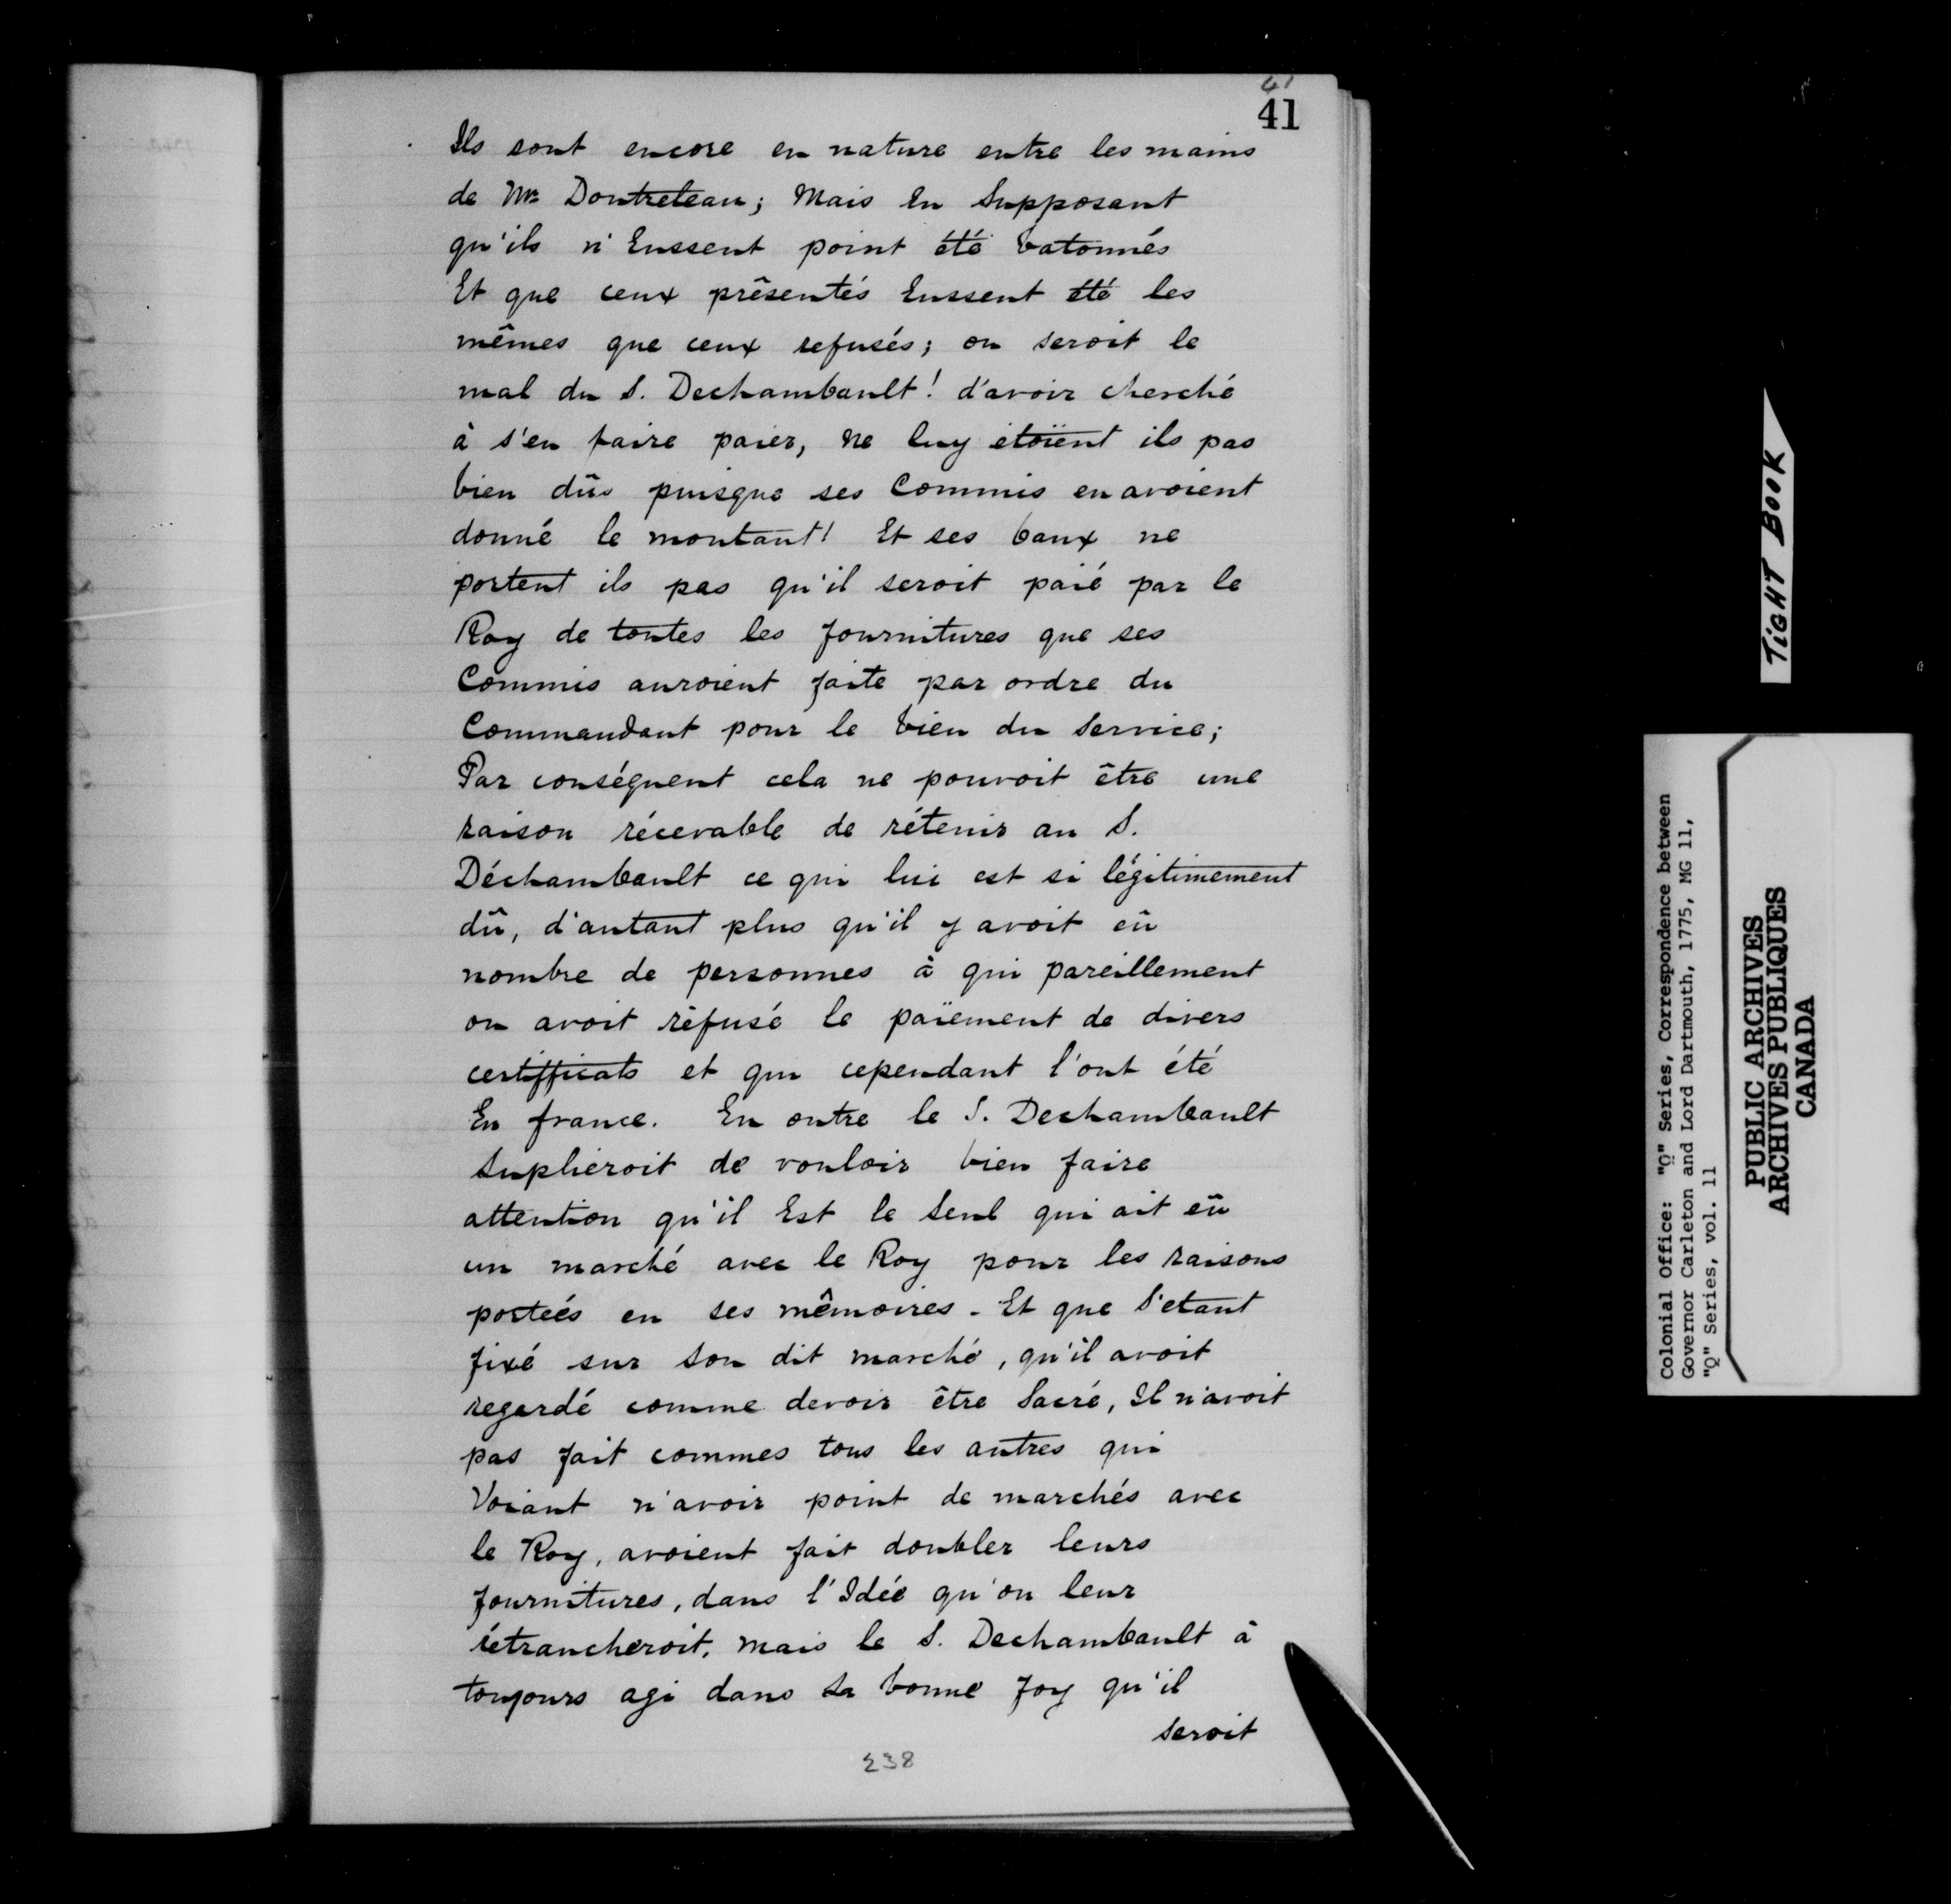 41
41
Ils sont encore en nature entre les mains
de Mr Doutreleau; Mais En Supposant
qu'ils n'Eussent point été batonnés
Et que ceux présentés Eussent été les
mêmes que ceux refusés; on seroit le
mal du S. Dechambault! d'avoir cherché
à s'en faire paier, Ne luy etoient ils pas
bien dûs puisque ses Commis en avoient
donné le montant! Et ses baux ne
portent ils pas qu'il seroit paié par le
Roy de toutes les fournitures que ses
Commis auroient faite par ordre du
Commandant pour le bien du Service;
Par conséquent cela ne pouvoit être une
raison récevable de rétenir au S.
Déchambault ce qui lui est si légitimement
dû, d'autant plus qu'il y avoit eû
nombre de personnes à qui pareillement
on avoit réfusé le païement de divers
certifficats et qui cependant l'ont été
En france. En outre le S. Dechambault
Suplieroit de vouloir bien faire
attention qu'il Est le Seul qui ait eû
un marché avec le Roy pour les raisons
porteés en ses mêmoires. Et que S'etant
fixé sur Son dit marché, qu'il avoit
regardé comme devoir être Sacré, Il n'avoit
pas fait commes tous les autres qui
Voiant n'avoir point de marchés avec
le Roy, avoient fait doubler leurs
fournitures, dans l'Idée qu'on leur
rétrancheroit, Mais le S. Dechambault à
toujours agi dans la bonne foy qu'il
seroit
238
TIGHT BOOK
Colonial Office: "Q" Series, Correspondence between
Governor Carleton and Lord Dartmouth, 1775, MG 11,
"Q" Series, vol. 11
PUBLIC ARCHIVES
ARCHIVES PUBLIQUES
CANADA